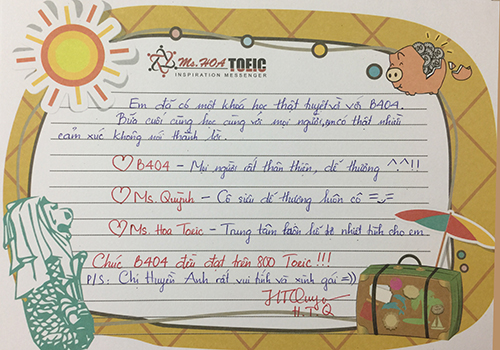 Ms. HOA TOEIC
INSPIRATION MESSENGER
Em đã có một khoá học thật tuyệt vời với B404.
Bữa cuối cùng học cùng với mọi người, em có thật nhiều
cảm xúc không nói thành lời.
♡ B404 – Mọi người rất thân thiện, dễ thương ^.^!!
♡ Ms. Quỳnh – Cô siêu dễ thương luôn có =)
♡ Ms. Hoa Toeic – Trung tâm luôn hỗ trợ nhiệt tình cho em
Chúc B404 đều đạt trên 800 Toeic !!!
P/S: Chị Huyền Anh rất vui tính và xinh gái =))
H.T.Q